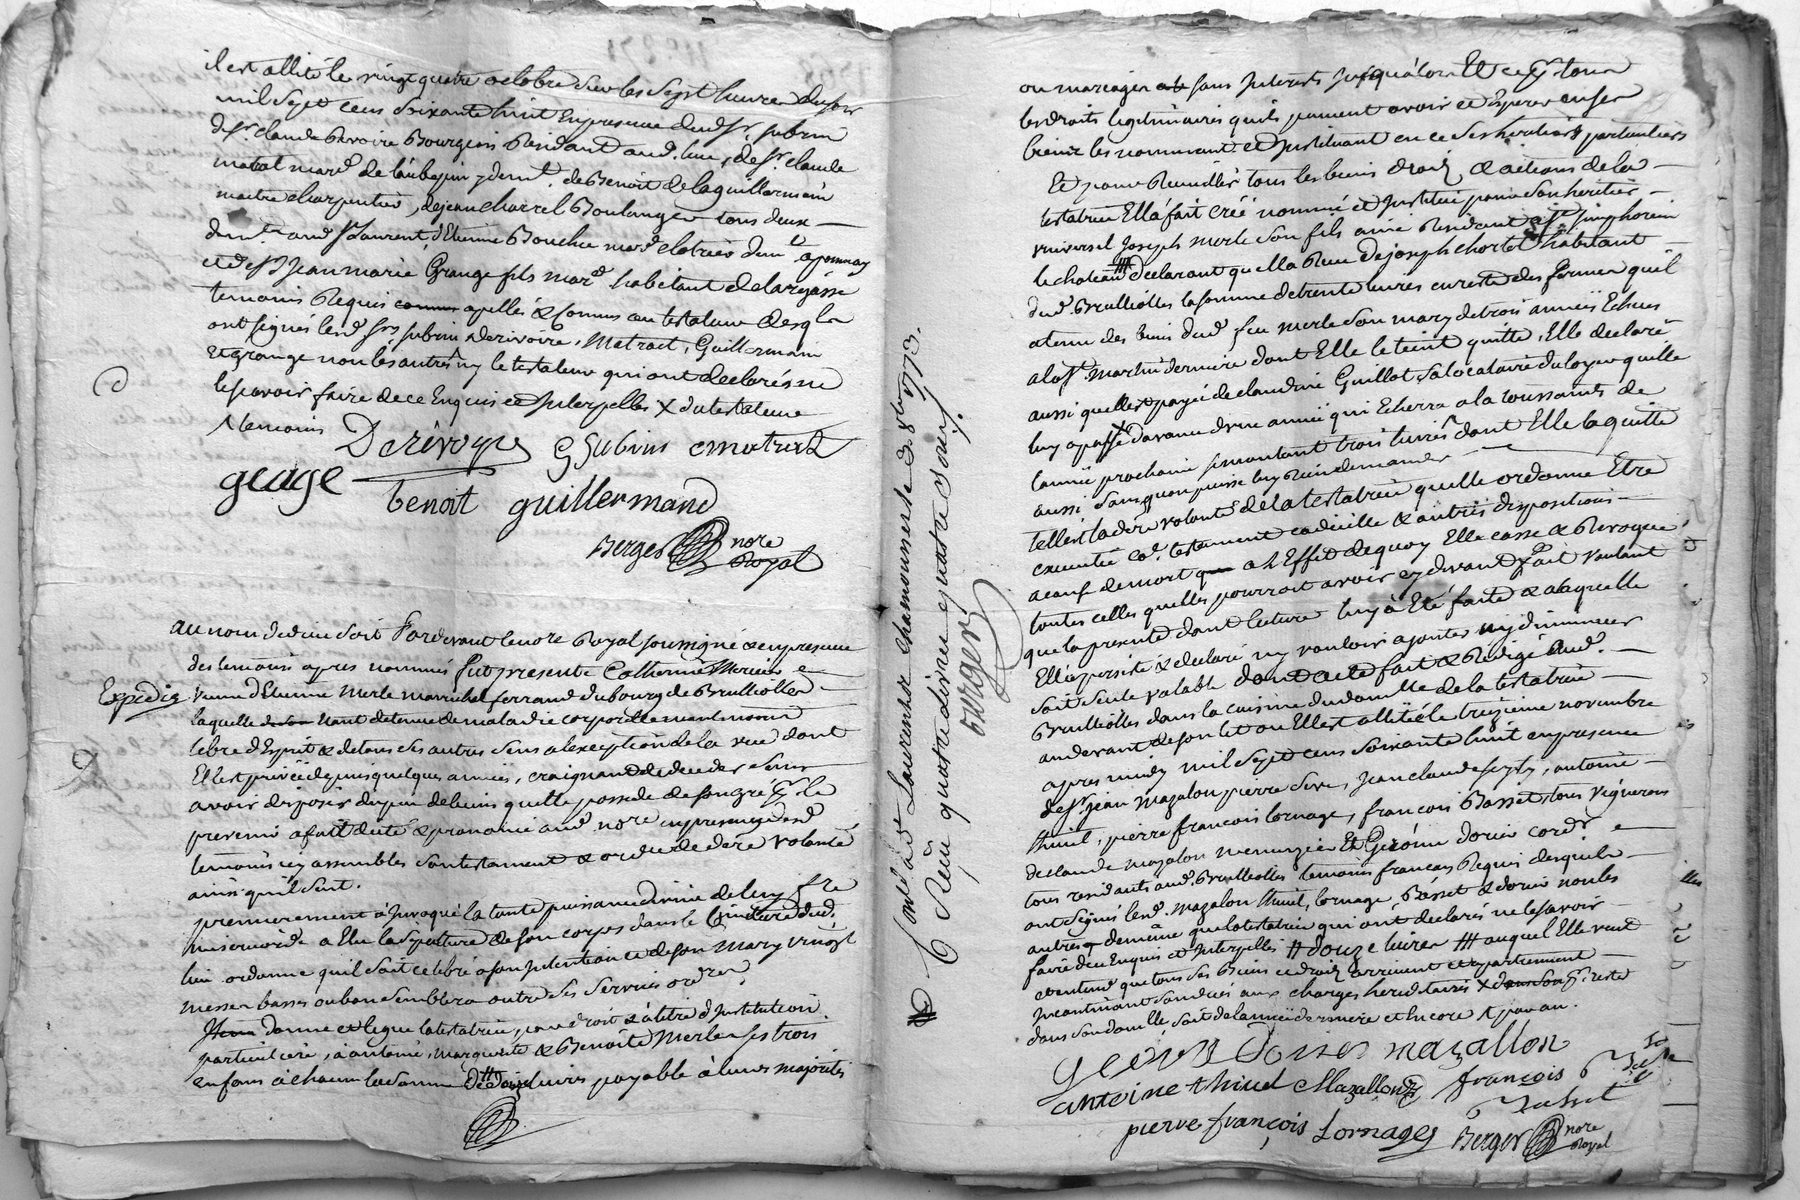 il est allité le vingt quatre octobre sur les sept heures du soir
mil sept cens soixante huit En presence dud. Sr. subrin
de Sr. claude Derivoire Bourgeois Residant aud. lieu, de Sr. claude
matrat mard. de laubepin y demt. de Benoit de la guillermain
maitre charpentier, de jean charrel Boulanger tous deux
demts. aud. St Laurent, d'Etienne Bouchu mard. demt. a
et de Sr Jean marie Grange fils mard. habitant de largassse
temoins Requis apellés & Connus au testateur desqls
ont signés lesd. Srs subrin Derivoire, Matrat, Guillermain
Et grange non les autres ny le testateur qui ont declarés ne
le sçavoir faire de ce Enquis et Interpellés X du testateur
& temoins
Derivoyre GSubrin cmatrat
geage
benoit guillermand
Berger nore
Royal
au nom de dieu soit Pardevant le nore Royal soussigné & en presence
des temoins apres nommés fut presente Catherine Mercier
Expédiée
veuve d'Etienne Merle marechal ferrand du bourg de Brulliolles
laquelle Etant detenue de maladie corporelle neantmoins
libre d'Esprit & de tous ses autres sens a lexception de la vue dont
Elle est privée depuis quelques années, craignant de deceder sans
avoir disposer du peu de biens quelle possede de son gré pr. le
prevenir a fait dicté & prononcé aud. nore en presence desd.
temoins icy assemblés son testament & ordre de dere volonté
ainsi qu'il suit.
premierement a Invoqué la toute puissance divine de luy fre
misericorde a Elu la sepulture de son corps dans le Cimetiere dud.
lieu ordonne quil soit celebré a son Intention et de son mary vingt
messes basses ou bon semblera outre ses services ordres
Item donne et legue la testatrice, par droit & a titre d'Institution
particuliere, a antoine, Marguerite & Benoite Merle ses trois
enfans a chacun la somme de livres payable a leurs majorités
contt. a De Laurens Chamousset le 8. xbre 1773.
Reçu quatre livres quatre sols
Berger
ou mariages sans Interests jusqu'alors Et ce pr. tous
les droits legitimaires quils peuvent avoir et Esperer en ses
biens les nommant et Instituant en ce ses heritiers particuliers
Et pour Residus tous les biens droits & actions de la
testatrice Elle a fait créé nommé et Institué pour son heritier
universel Joseph Merle son fils ainé Residant a St. simphorien
le chateau declarant quelle a Reçu de joseph chortet habitant
dud. Brulliolles la somme de trente livres en reste des fermes qu'il
a tenu des biens dud. feu merle son mary de trois années Echues
a la St. Martin derniere dont Elle le tient quitte, Elle declare
aussi quelle est payée de claudine Guillot sa locataire du loyer quelle
luy a passé davance d'une année qui Echerra a la toussaints de
lannée prochaine se montant trois livres dont Elle la quitte
aussi sans quon puisse luy Rien demander
telle est la dere volonté de la testatrice quelle ordonne Etre
executée ce. testament codicille & autres dispositions
a cause de mort a l'Effet de quoy Elle casse & Revoque
toutes celles quelles pourroit avoir cy devant fait voulant
que la presente dont lecture luy à Eté faite & a laquelle
Elle a persisté & declaré ny vouloir ajouter ny diminuer
soit seule valable dont acte fait & Redigé aud.
Brulliolles dans la cuisine du domicille de la testatrice
au devant de son lit ou Elle est allitée le treizieme novembre
apres midy mil sept cens soixante huit en presence
de Sr. jean Mazalon, pierre Sive, Jean claude, antoine
thiuel, pierre françois lornage, françois Basset, tous vignerons
de claude mazalon menuzier Et Gerome Dorier cordr.
tous residants aud. Brulliolles temoins francais Requis desquels
ont signés lesd. Mazalon thiuel, lornage, Basset & dorier non les
autres de même que la testatrice qui ont declarés ne le sçavoir
faire de ce Enquis et Interpellés # douze livres ## auquel Elle veut
et entend que tous ses Biens et droits arrivent et apartiennent
Incontinant son decés aux charges hereditaires X reste
dans son domicille, soit de lannée derniere et Encore & par an.
Gerome Dorier mazallon
antoine thiuel CMazallon françois
Basset
pierre françois Lornage Berger nore
Royal